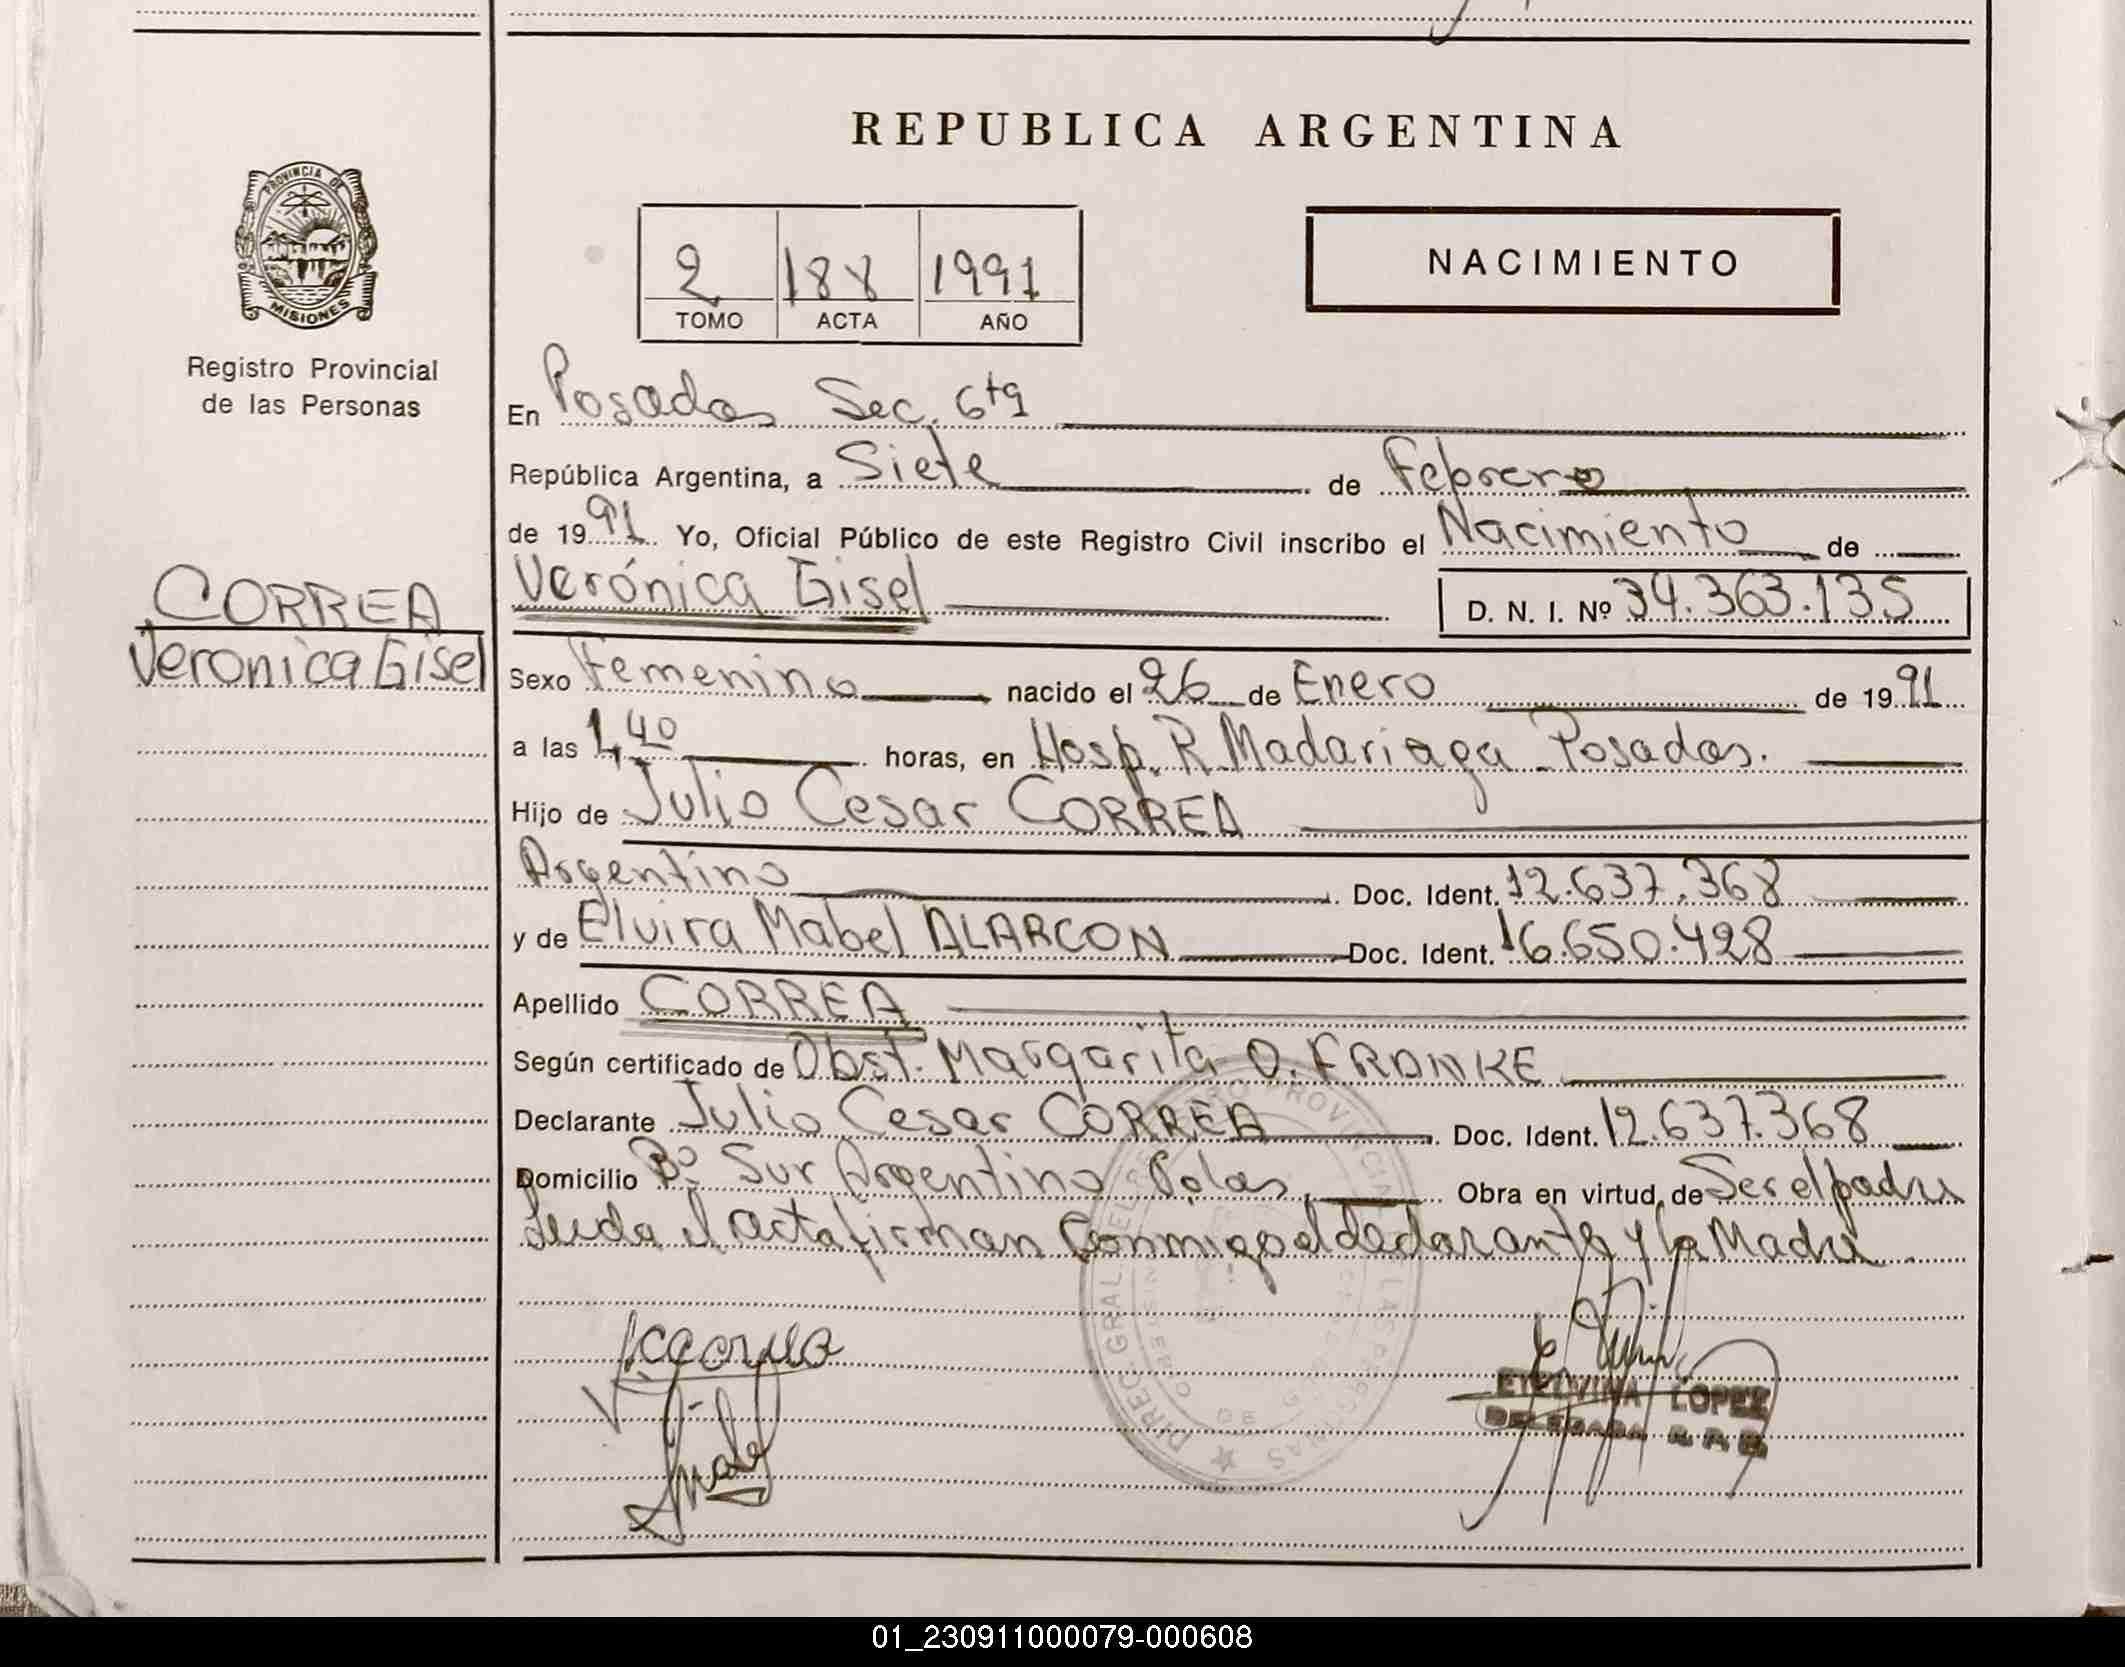 REPUBLICA ARGENTINA
PROVINCIA DE
MISIONES
Registro Provincial
de las Personas
2 188 1991
TOMO ACTA AÑO
NACIMIENTO
En Posadas Sec. 6ta
República Argentina, a Siete de Febrero
de 1991 Yo, Oficial Público de este Registro Civil inscribo el Nacimiento de
CORREA
Veronica Gisel
Verónica Gisel D. N. I. Nº 34.363.135
Sexo Femenino nacido el 26 de Enero de 1991
a las 1,40 horas, en Hosp. R. Madariaga Posadas.
Hijo de Julio Cesar CORREA
Argentino Doc. Ident. 12.637.368
y de Elvira Mabel ALARCON Doc. Ident. 16.650.428
Apellido CORREA
Según certificado de Obst. Margarita O. FRANKE
Declarante Julio Cesar CORREA Doc. Ident. 12.637.368
Domicilio Bº Sur Argentino Pdas, Obra en virtud de Ser el padre
Leida el acta firman Conmigo el declarante y la Madre
DIREC. GRAL. DEL REGISTRO PROVINCIAL DE LAS PERSONAS
LOPEZ
DELEGADA R. P. P.
01_230911000079-000608